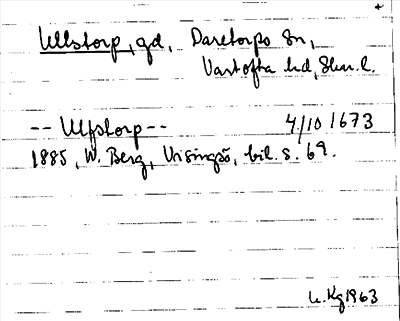 Ullstorp, gd, Daretorps sn,
Vartofta hd, Skar. l.
-- Ulfstorp -- 4/10 1673
1885, W. Berg, Visingsö, bil. s. 69.
Kg 1963